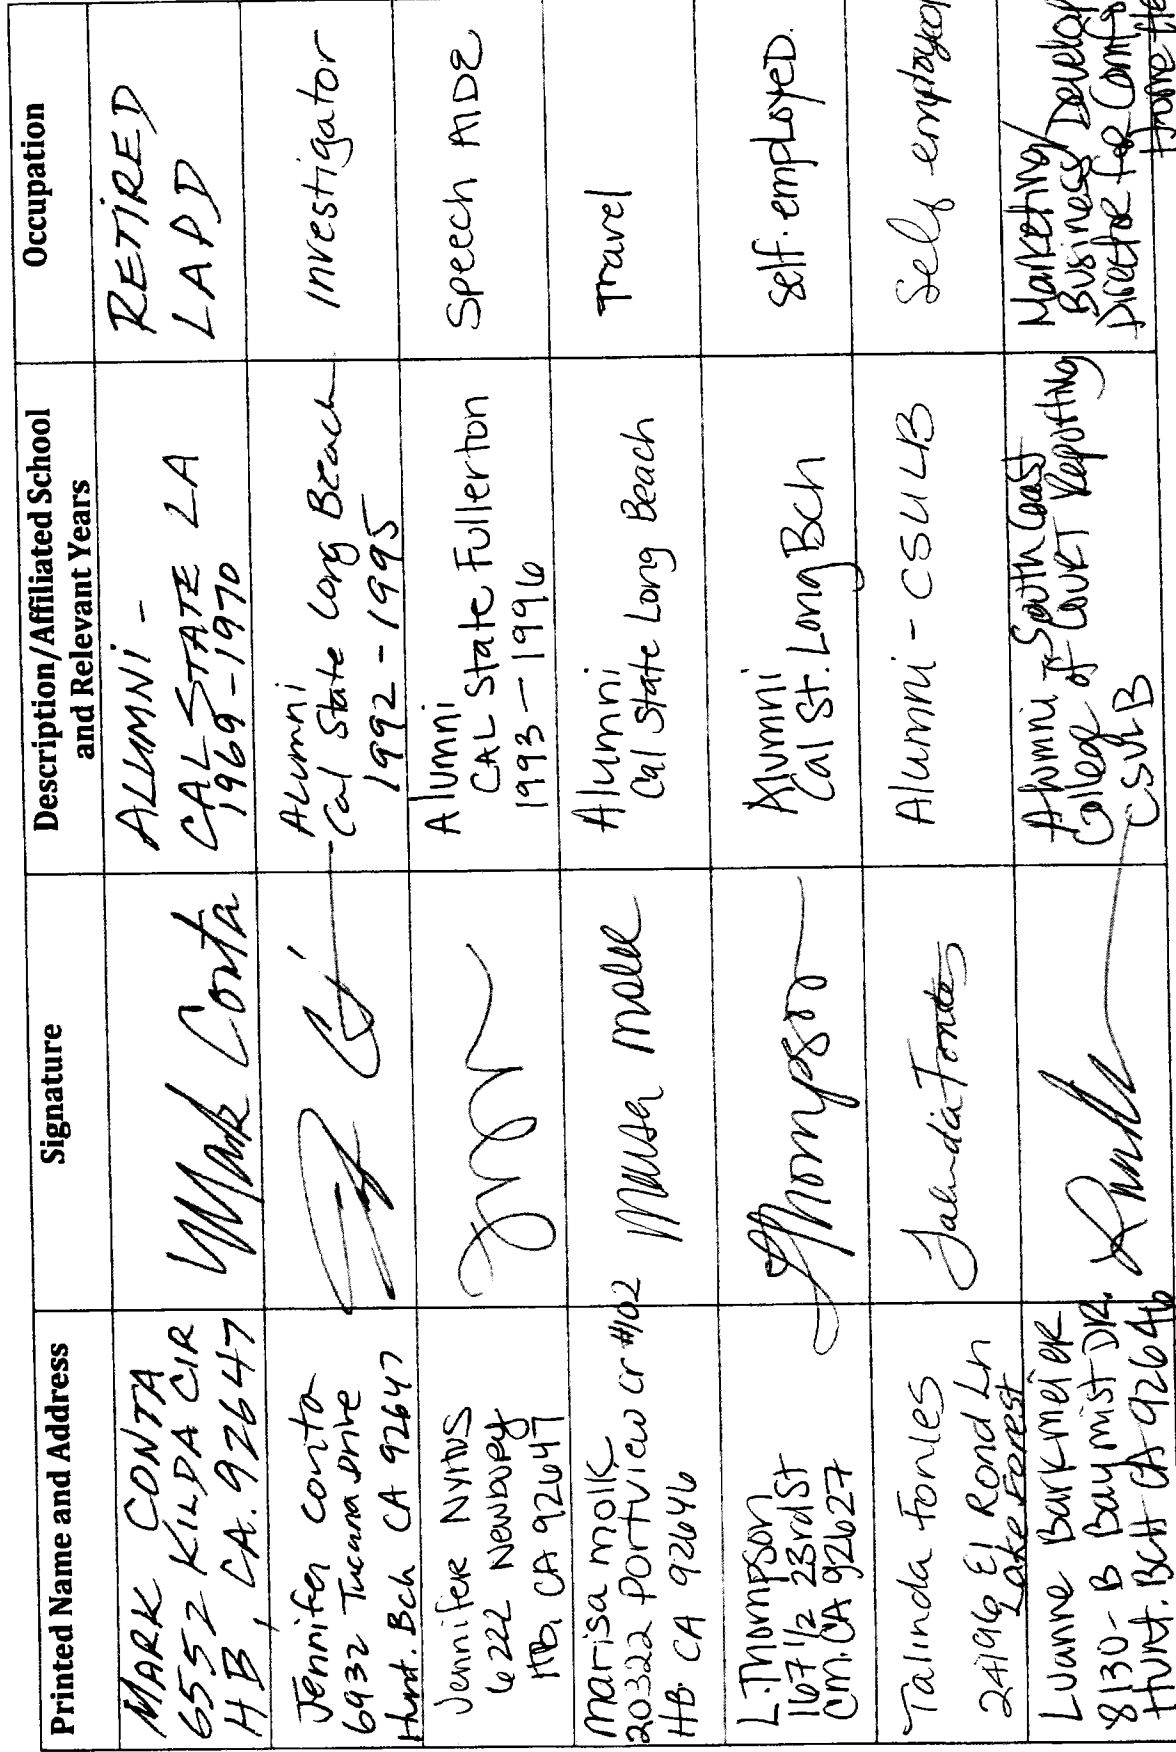 Printed Name and Address
Signature
Description/Affiliated School
and Relevant Years
Occupation
MARK CONTA
6552 KILDA CIR
HB, CA. 92647
Mark Conta
ALUMNI -
CAL STATE LA
1969-1970
RETIRED
LAPD
Jennifer Conta
6932 Tucana Drive
Hunt. Bch CA 92647
Alumni
Cal State Long Beach
1992-1995
Investigator
Jennifer
6222 Newbury
HB, CA 92647
Alumni
CAL State Fullerton
1993-1996
Speech AIDE
Marisa Molk
20322 Portview Cr #102
HB. CA 92646
Alumni
Cal State Long Beach
Travel
L. Thompson
167 1/2 23rd St
CM. CA 92627
Thompson
Alumni
Cal St. Long Bch
Self. employed.
Talinda
24196 El Rond Ln
Lake Forest
Talinda
Alumni - CSULB
Self employed
Luanne Barkmeier
8130-B Baymist DR.
Hunt. BCH CA 92646
Alumni - South Coast
College of Court Reporting
CSULB
Marketing/
Business Develop
Director for Comfo
Home